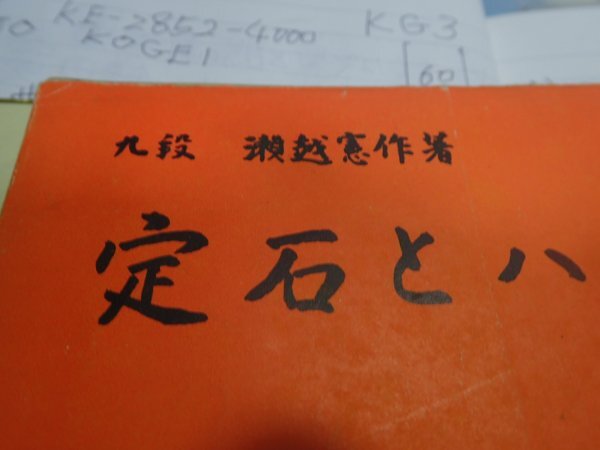 KE-2852-4000 KG3
KOGEI [60]
九段 瀬越憲作著
定石とハ